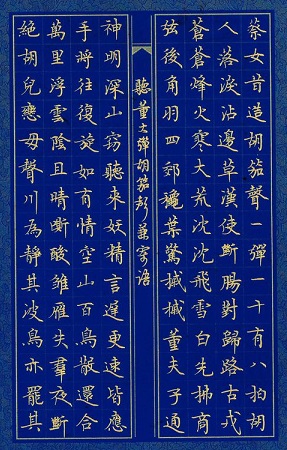 蔡女昔造胡笳聲一彈一十有八拍胡
人落淚沾邊草漢使斷腸對歸路古戍
蒼蒼烽火寒大荒沈沈飛雪白先拂商
弦後角羽四郊龝葉驚摵摵董夫子通
聽董大彈胡笳聲兼寄語
神明深山竊聽來妖精言遲更速皆應
手將往復旋如有情空山百鳥散還合
萬里浮雲陰且晴嘶酸雛雁失羣夜斷
絕胡兒戀母聲川為靜其波鳥亦罷其